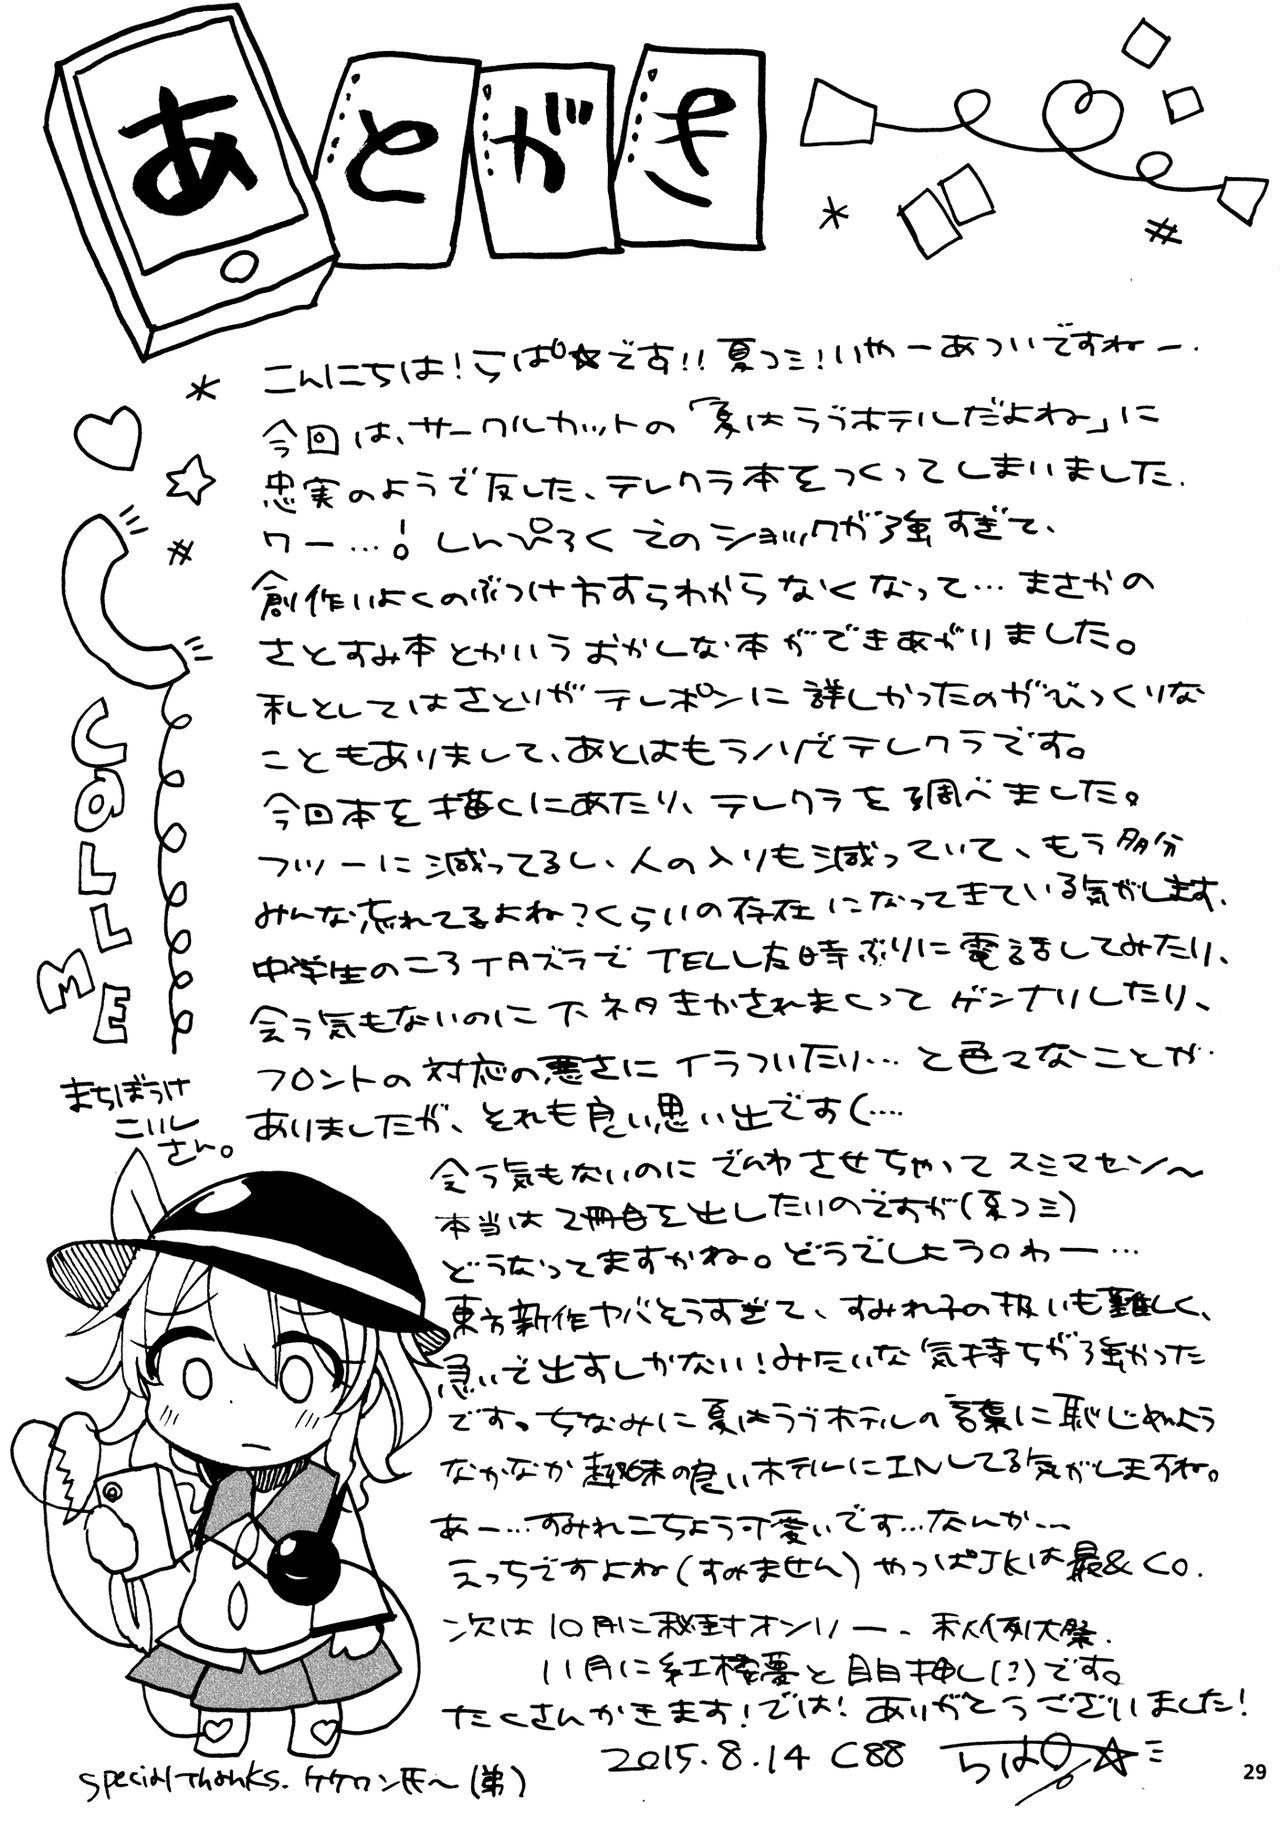 あとがき
こんにちは!らぱ☆です!!夏コミ!いやーあついですねー.
今回は、サークルカットの「夏はラブホテルだよね」に
忠実のようで反した、テレクラ本をつくってしまいました.
ワー…!しんぴろくえのショックが強すぎて、
創作いよくのぶつけ方すらわからなくなって…まさかの
さとすみ本とかいうおかしな本ができあがりました。
私としてはさとりがテレポンに詳しかったのがびっくりな
こともありまして、あとはもうノリでテレクラです。
今回本を描くにあたり、テレクラを調べました。
フツーに減ってるし、人の入りも減っていて、もう多分
みんな忘れてるよね?くらいの存在になってきている気がします.
中学生のころイタズラでTELした時ぶりに電話してみたり、
会う気もないのに下ネタきかされまくってゲンナリしたり、
フロントの対応の悪さにイラついたり…と色々なことが
ありましたが、それも良い思い出です(….
会う気もないのにでんわさせちゃってスミマセン〜
本当は2冊目を出したいのですが(夏コミ)
どうなってますかね。どうでしょう。わー…
東方新作ヤバそうすぎて、すみれ子の扱いも難しく、
急いで出すしかない!みたいな気持ちが強かった
です。ちなみに夏はラブホテルの言葉に恥じぬよう
なかなか趣味の良いホテルにINしてる気がしますね。
あー…すみれこちょう可愛いです…なんか…
えっちですよね(すみません)やっぱJKは最&CO.
次は10月に秘封オンリー、秋例大祭.
11月に紅楼夢と目白押し(?)です。
たくさんかきます!では!ありがとうございました!
2015.8.14 C88 らぱ☆
CALL ME
まちぼうけ
こいし
さん。
special thanks. ケケワン氏〜(弟)
29